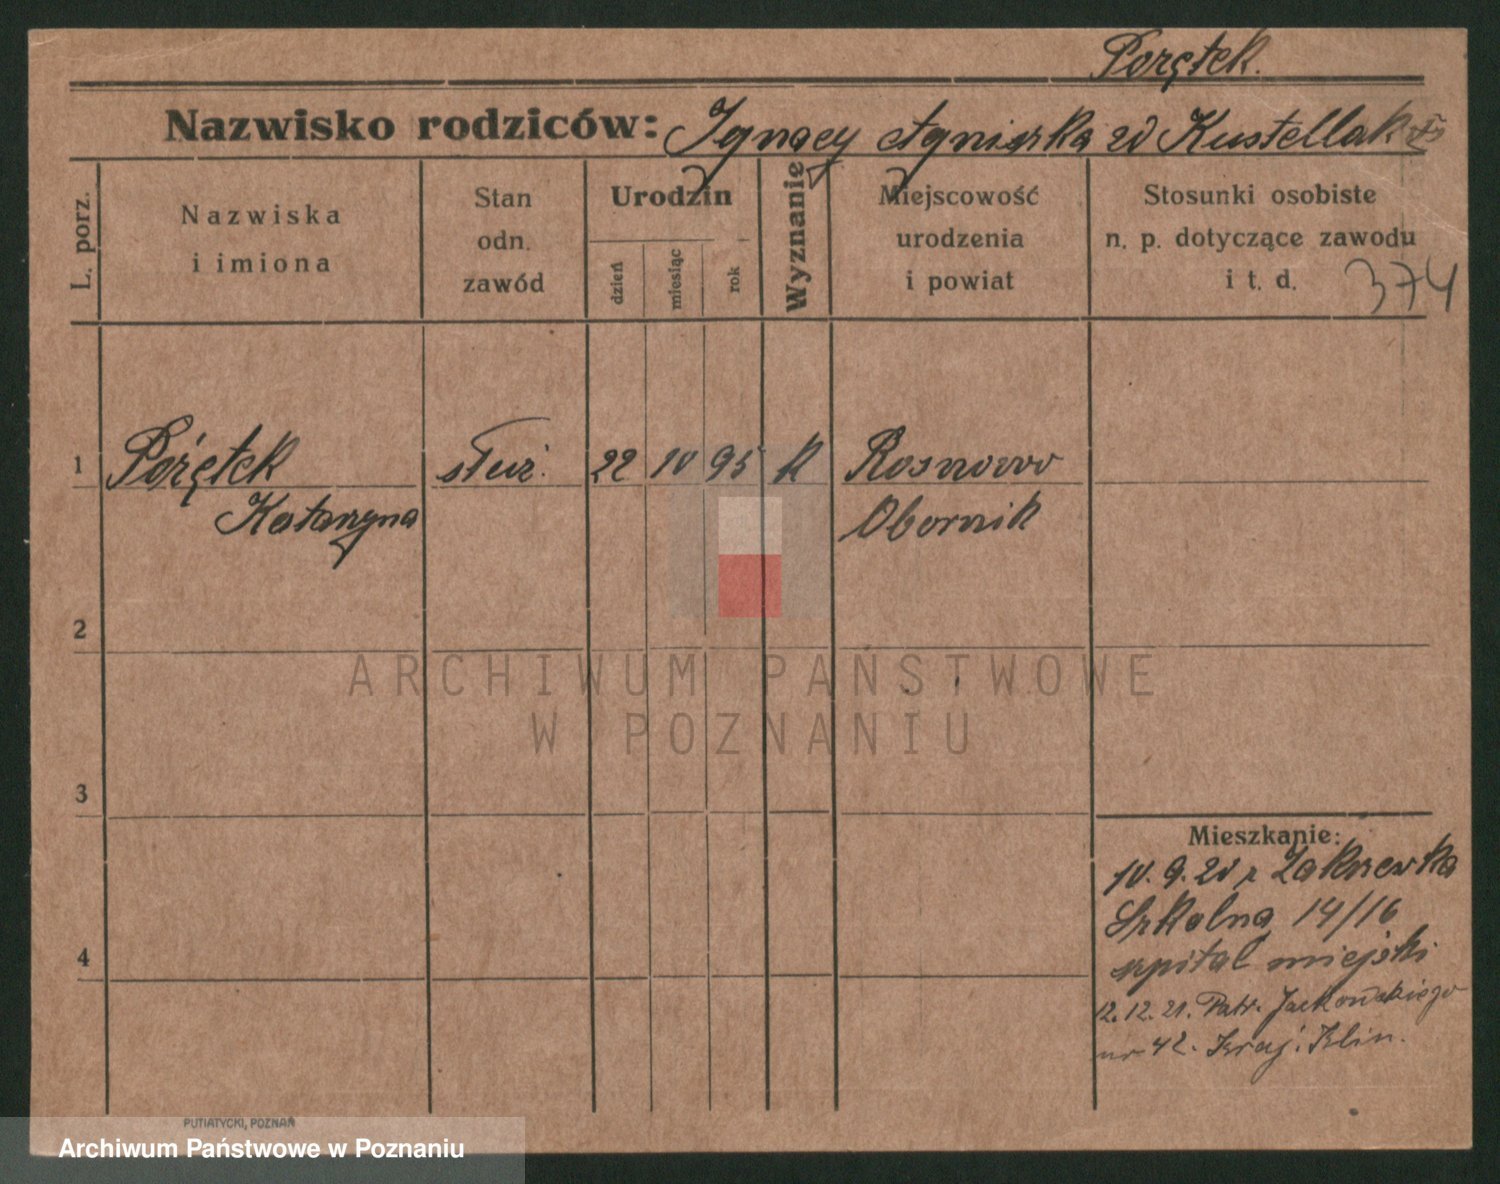 Porętek.
Nazwisko rodziców: Ignacy Agnieszka zd Kustellak
L. porz.
Nazwiska
i imiona
Stan
odn.
zawód
Urodzin
dzień
miesiąc
rok
Wyznanie
Miejscowość
urodzenia
i powiat
Stosunki osobiste
n. p. dotyczące zawodu
i t. d.
374
1
Porętek
Katarzyna
służ.
22
10
95
k
Rosnowo
Obornik
2
3
4
Mieszkanie:
10.9.20 z Zakrzewka
Szkolna 14/16
szpital miejski
12.12.21. Patr. Jackowskiego
nr 42. Kraj. Klin.
PUTIATYCKI, POZNAŃ
ARCHIWUM PAŃSTWOWE
W POZNANIU
Archiwum Państwowe w Poznaniu